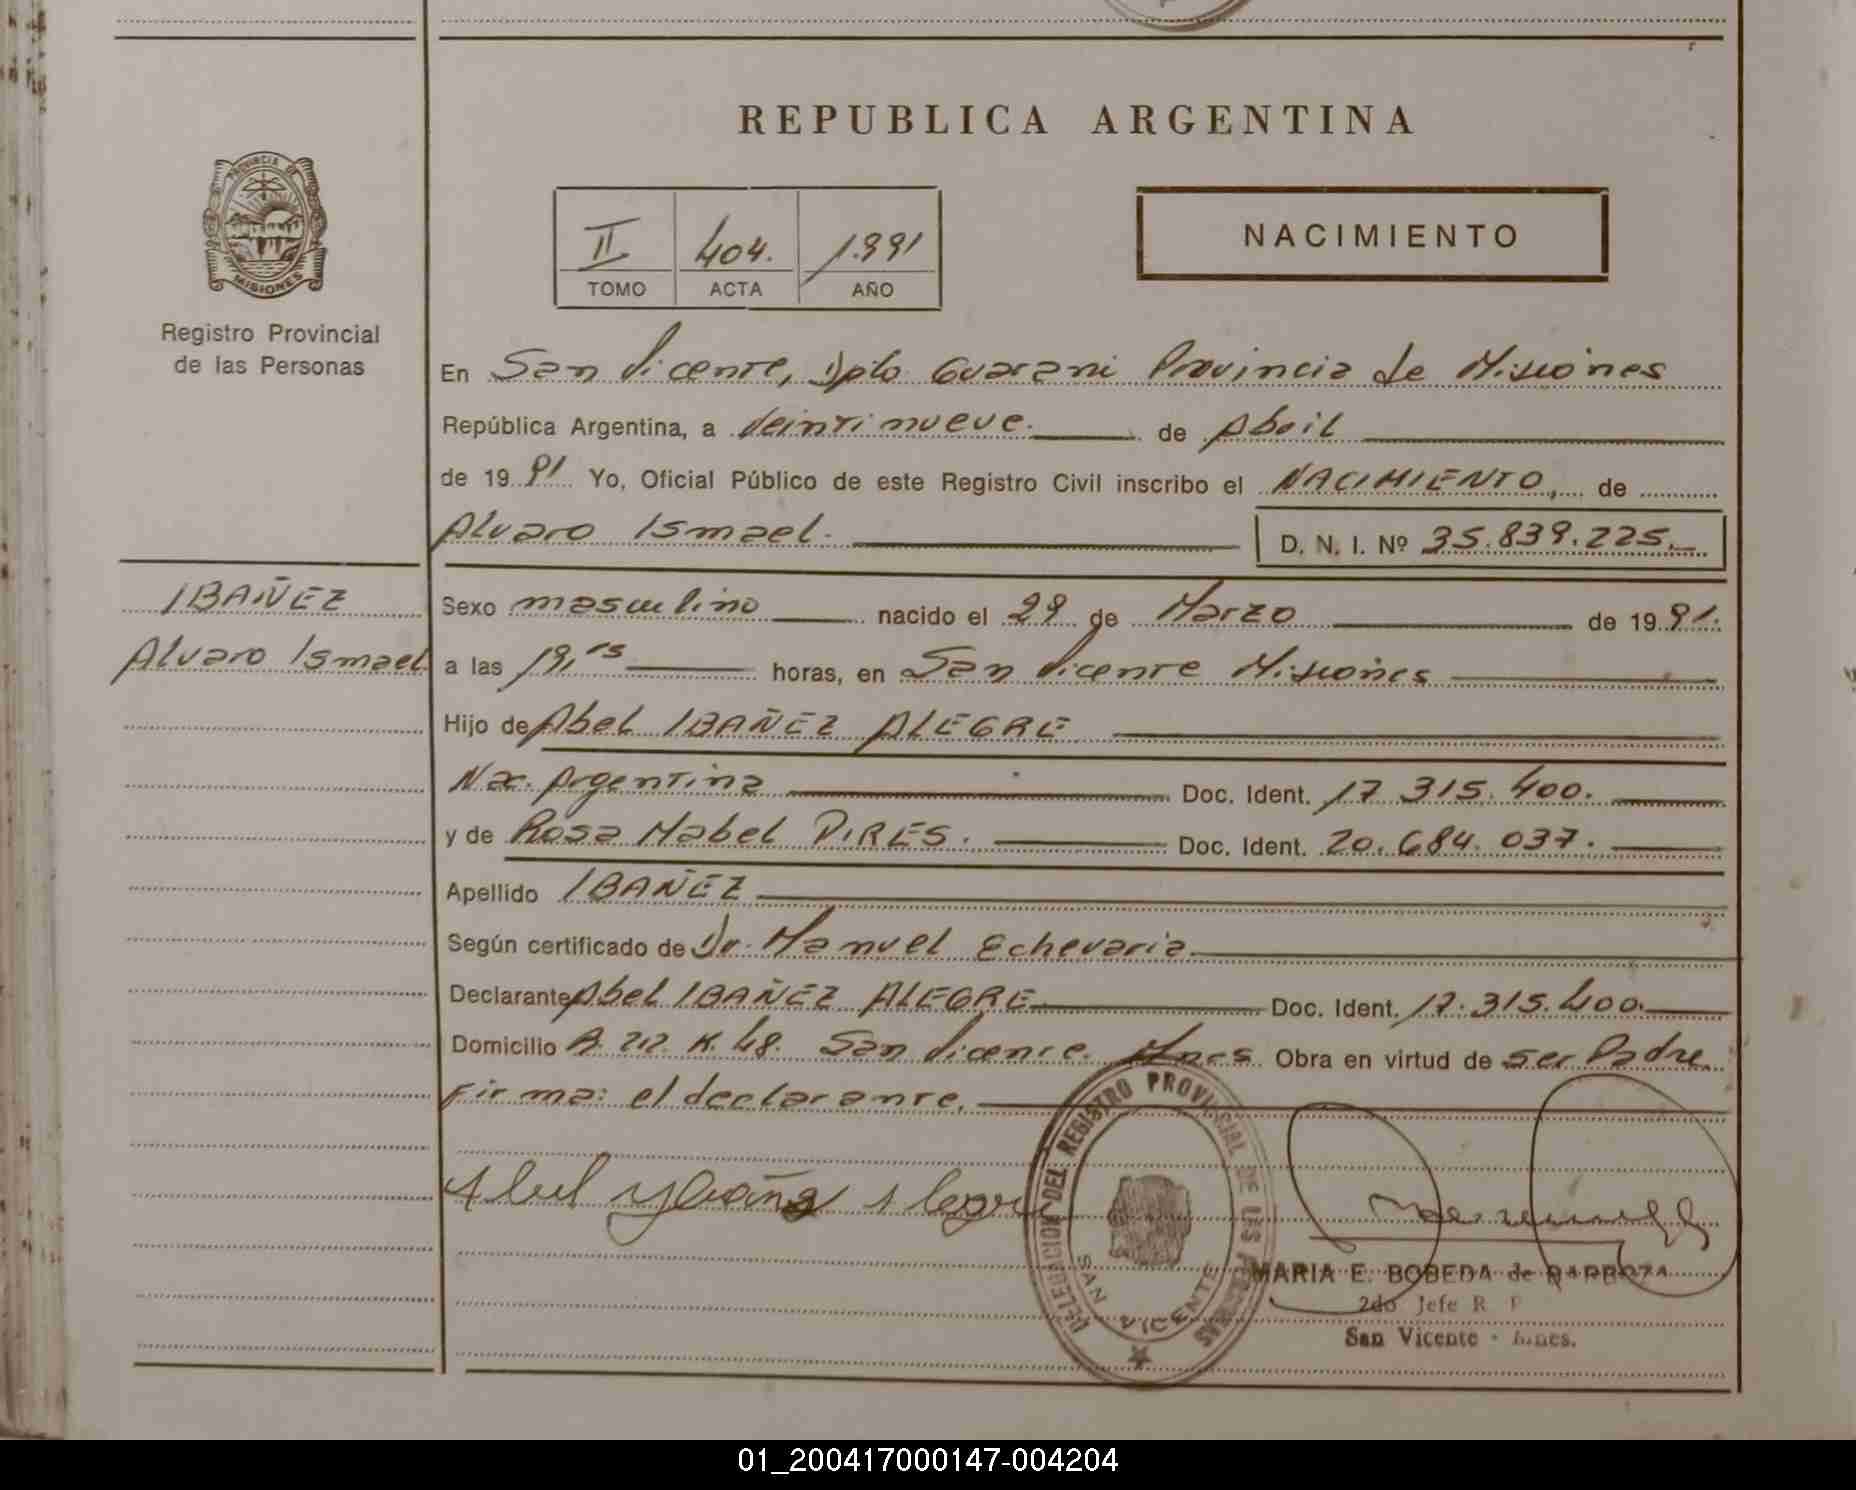 REPUBLICA ARGENTINA
PROVINCIA DE
MISIONES
Registro Provincial
de las Personas
II 404. 1.991
TOMO ACTA AÑO
NACIMIENTO
En San Vicente, Dpto Guarani Provincia de Misiones
República Argentina, a Veintinueve. de Abril
de 1991 Yo, Oficial Público de este Registro Civil inscribo el NACIMIENTO, de
Alvaro Ismael. D. N. I. Nº 35.839.225.
IBAÑEZ
Alvaro Ismael
Sexo masculino nacido el 29 de Marzo de 1991.
a las 19,15 horas, en San Vicente Misiones
Hijo de Abel IBAÑEZ ALEGRE
Nac. Argentina Doc. Ident. 17.315.400.
y de Rosa Mabel PIRES. Doc. Ident. 20.684.037.
Apellido IBAÑEZ
Según certificado de Dr. Manuel Echevaria.
Declarante Abel IBAÑEZ ALEGRE Doc. Ident. 17.315.400.
Domicilio A. 212. K. 48. San Vicente. Mnes. Obra en virtud de ser Padre.
Firma: el declarante.
Abel Ybañez Alegre
DELEGACION DEL REGISTRO PROVINCIAL DE LAS PERSONAS
SAN VICENTE
MARIA E. BOBEDA de BARBOZA
2do Jefe R. P.
San Vicente - Mnes.
01_200417000147-004204